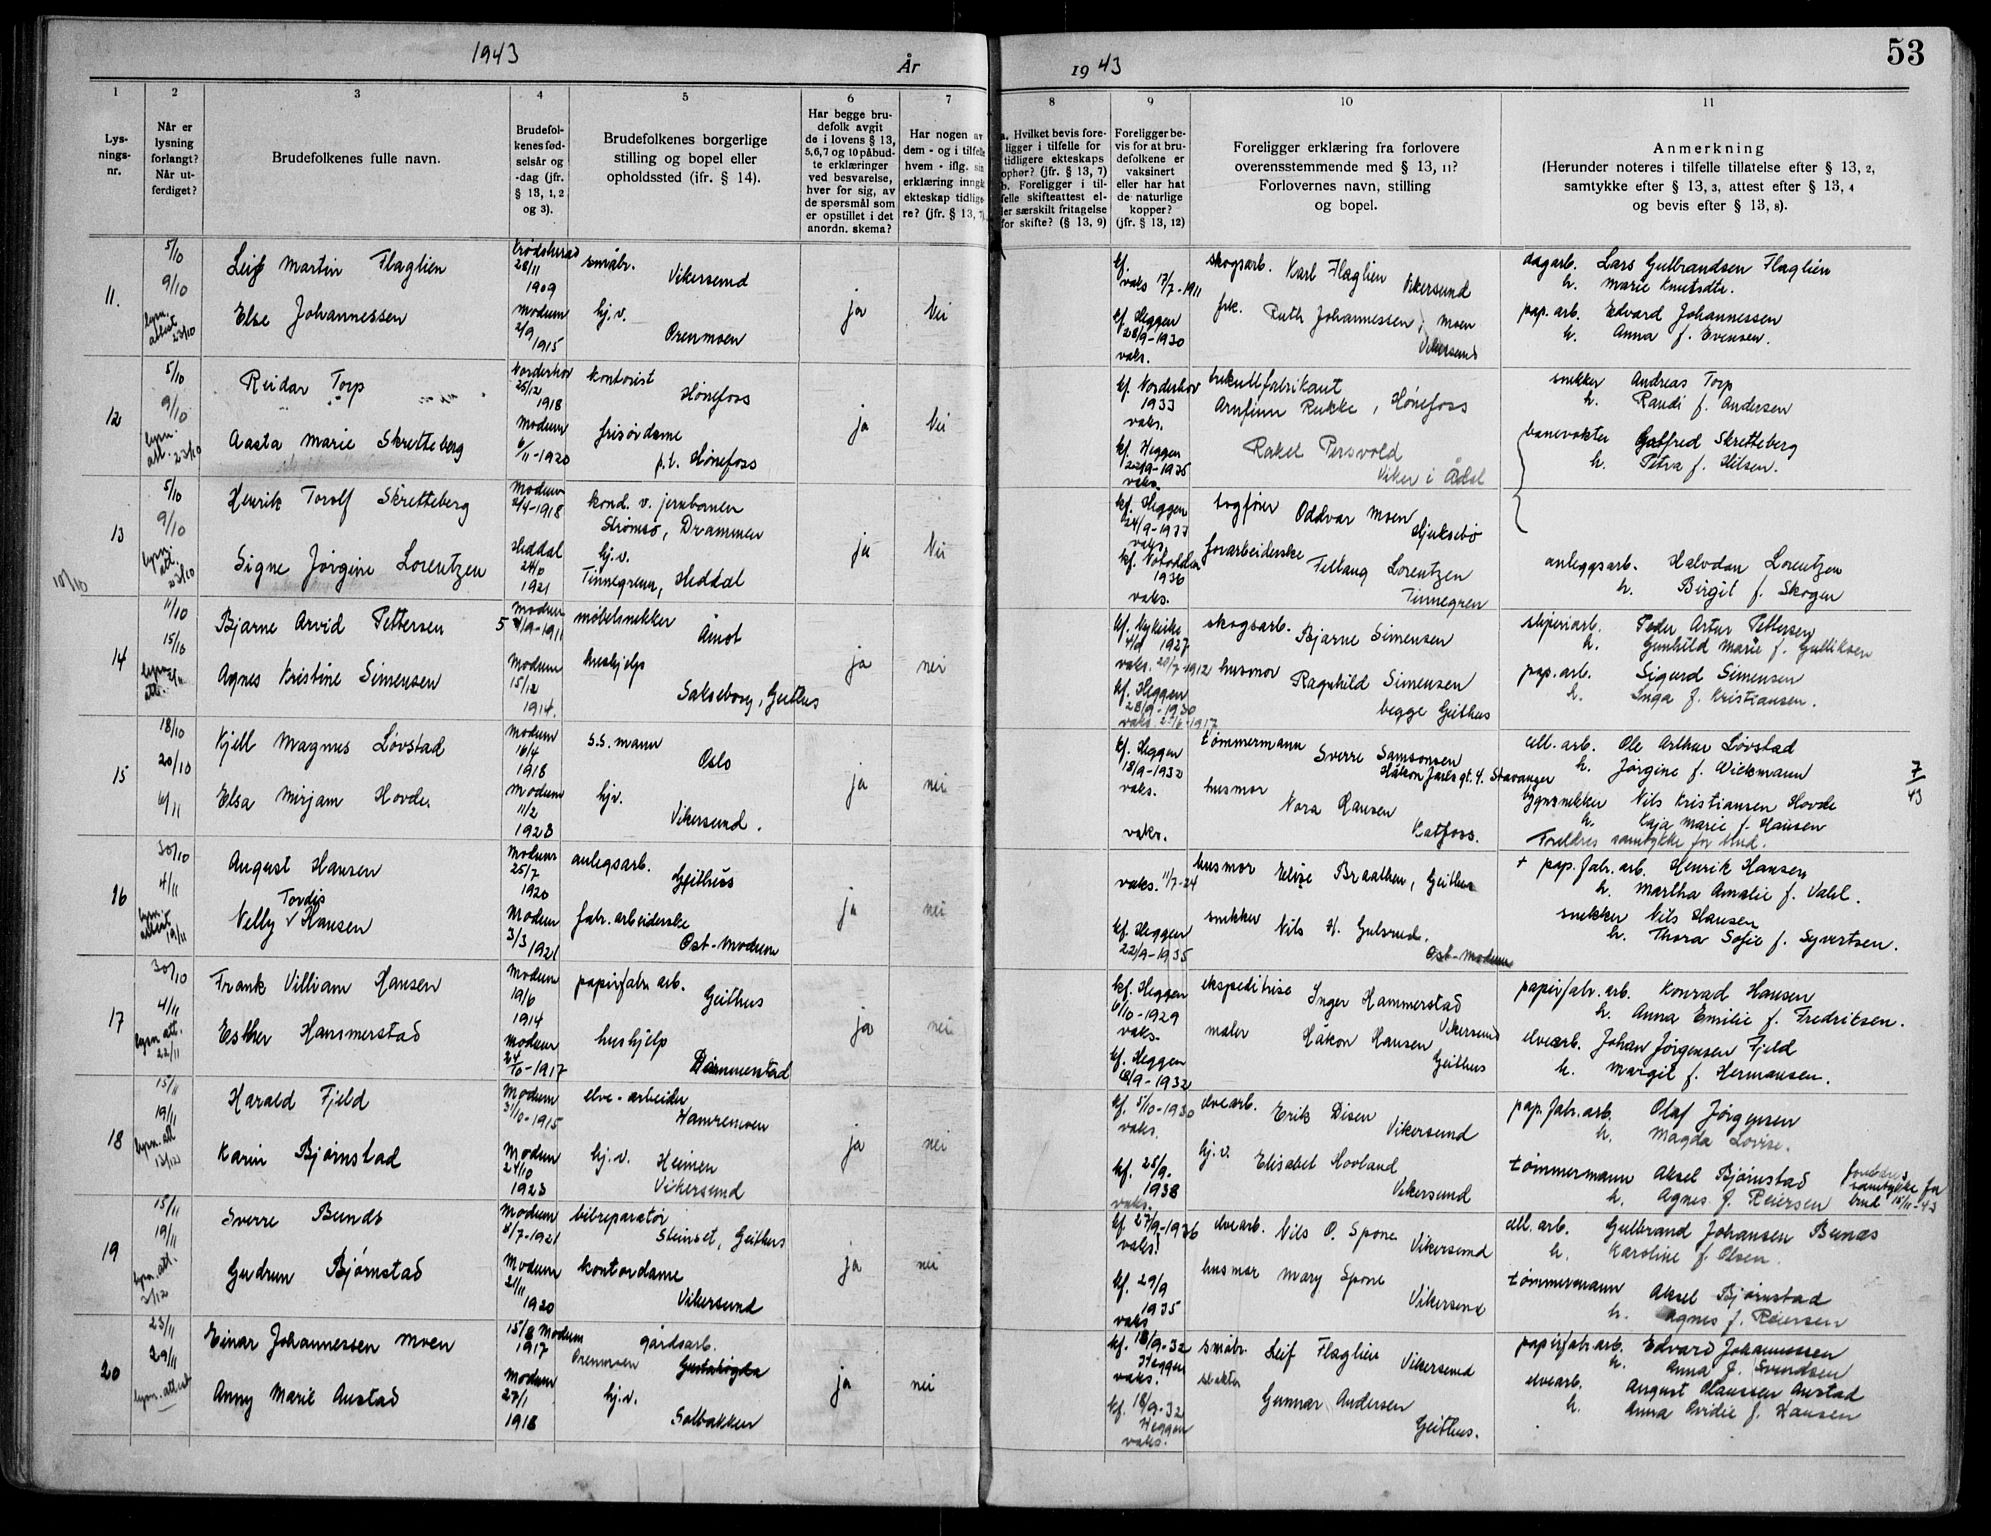 1943
År
1943
53
1
2
3
4
5
6
7
8
9
10
11
Lys-
nings-
nr.
Når er
lysning
forlangt?
Når ut-
ferdiget?
Brudefolkenes fulle navn.
Brudefol-
kenes fød-
selsår og
-dag (jfr.
§ 13, 1, 2
og 3).
Brudefolkenes borgerlige
stilling og bopel eller
opholdssted (ifr. § 14).
Har begge bru-
defolk avgit
de i lovens § 13,
5,6,7 og 10 påbud-
te erklæringer
ved besvarelse,
hver for sig, av
de spørsmål som
er opstillet i det
anordn. skema?
Har nogen av
dem - og i tilfelle
hvem - iflg. sin
erklæring inngå
ekteskap tidlige-
re? (jfr. § 13, 7)
a. Hvilket bevis fore-
ligger i tilfelle for
tidligere ekteskaps
ophør? (jfr. § 13, 7)
b. Foreligger i til-
felle skifteattest el-
ler særskilt fritagelse
for skifte? (§ 13, 9)
Foreligger be-
vis for at bru-
defolkene er
vaksinert
eller har hat
de naturlige
kopper?
(jfr. § 13, 12)
Foreligger erklæring fra forlovere
overensstemmende med § 13, 11?
Forlovernes navn, stilling
og bopel.
Anmerkning
(Herunder noteres i tilfelle tillatelse efter § 13, 2,
samtykke efter § 13, 3, attest efter § 13, 4
og bevis efter § 13, 8).
11.
5/10
9/10
lysn.
attest
23/10
Leif Martin Flaglien
Krødsherad
28/11
1909
småbr.
Vikersund
Else Johannessen
Modum
2/9
1915
hj.v.
Orenmoen
ja
Nei
kf.
vaks 17/7-1911
kf. Heggen
28/9-1930
vaks.
skogsarb. Karl Flaglien Vikersund
frk. Ruth Johannessen, Moen
Vikersund
dagarb. Lars Gulbrandsen Flaglien
h. Marie Knutsdtr.
pap. arb. Edvard Johannessen
h. Anna f. Evensen.
12
5/10
9/10
lysn.
att.
23/10
Reidar Torp
Norderhov
25/12
1918
kontorist
Hønefoss
Aasta Marie Skretteberg
Modum
6/11-1920
frisørdame
p.t. Hønefoss
ja
Nei
kf. Norderhov
1933
vaks.
kf. Heggen
22/9-1935
vaks.
Arnfinn Rukke, Hønefoss
Rakel Persvold
Viker i Ådal
snekker Andreas Torp
h. Randi f. Andersen
banevokter Gotfred Skretteberg
h. Petra f. Hilsen.
13
5/10
9/10
lysn.
att.
23/10
10/10
Henrik Torolf Skretteberg
Modum
2/4-1918
kond. v. jernbanen
Strømsø, Drammen
Signe Jørgine Lorentzen
Heddal
1921
hj.v.
Tinnegrena, Heddal
ja
Nei
kf. Heggen
24/9-1933
vaks.
kf. Notodden
1936
vaks.
togfører Oddvar Moen
Hjuksebø
forarbeiderske
Lorentzen
Tinnegren
anleggsarb. Halvdan Lorentzen
h. Birgit f. Skogen
14
11/10
15/10
lysn.
att.
Bjarne Arvid Pettersen
Modum
5/9-1911
møbelsnekker
Åmot
Agnes Kristine Simensen
Modum
15/12
1914.
hushjelp
Sakseborg, Geithus
ja
nei
kf. Nykirke
1927
vaks. 20/7-1912
kf. Heggen
28/9-1930
vaks. 2/6-1917
skogsarb. Bjarne Simensen
husmor Ragnhild Simensen
begge Geithus
sliperiarb. Peder Artur Pettersen
h. Gunhild Marie f. Gulliksen
pap. arb. Sigurd Simensen
h. Inga f. Kristiansen.
15
18/10
20/10
6/11
Kjell Magnus Løvstad
Modum
16/4
1918
s.s. mann
Oslo
Elsa Mirjam Hovde.
Modum
11/2
1923
hjv.
Vikersund.
ja
nei
kf. Heggen
18/9-1932
vaks.
vaks.
tømmermann Sverre Samsonsen
Håkon Jarls gt. 4. Stavanger
husmor Nora Hansen
Katfoss.
cell. arb. Ole Arthur Løvstad
h. Jørgine f. Wickmann
bygnsnekker Nils Kristiansen Hovde
h. Kaja Marie f. Hansen
Foreldres samtykke for brud.
7/43
16
30/10
4/11
lysn.
attest
19/11
August Hansen
Modum
25/7
1920
anlegsarb.
Geithus
Tordis
Nelly v Hansen
Modum
3/3 1921
fabr. arbeiderske
Øst-Modum
ja
nei
vaks. 11/7-24
kf. Heggen
22/9-1935
husmor Elise Braathen, Geithus
snekker Nils H. Gulsrud.
Øst-Modum
+ pap. fabr. arb. Henrik Hansen
h. Martha Amalie f. Valel.
snekker Nils Hansen
h. Thora Sofie f. Syvertsen.
17
30/10
4/11
lysn. att.
22/11
Frank Villiam Hansen
Modum
19/6
1914
papirfabr. arb.
Geithus
Esther Hammerstad
Modum
24/10-1917
hushjelp
Dammerstad
ja
nei
kf. Heggen
6/10-1929
vaks.
kf. Heggen
18/9-1932
ekspeditrise Inger Hammerstad
Vikersund
maler Håkon Hansen
Geithus
papirfabr. arb. Konrad Hansen
h. Anna Emilie f. Fredriksen.
elvearb. Johan Jørgensen Fjeld
h. Margit f. Hermansen.
18
15/11
19/11
lysn. att
13/12
Harald Fjeld
Modum
31/10-1915
elve-arbeider
Hamremoen
Karin Bjørnstad
Modum
24/10
1923
hj.v. Heimen
Vikersund
ja
nei
kf. 5/10-1930
vaks.
kf. 25/9.
1938
vaks.
elvearb. Erik Disen
Vikersund
hj.v. Elisabet Hovland
Vikersund
pap. fabr. arb. Olaf Jørgensen
h. Magda Lovise.
tømmermann Aksel Bjørnstad
h. Agnes f. Reiersen
foreldres
samtykke for
brud 15/11-43
19
15/11
19/11
lysn. att.
3/12
Sverre Bunds
Modum
8/7-1921
bilreparatør
Steinset, Geithus
Gudrun Bjørnstad
Modum
21/11
1920
kontordame
Vikersund
ja
nei
kf. 27/9-1936
vaks.
kf. 29/9
1935
vaks
elvearb. Nils O. Spone
Vikersund
husmor Mary Spone
Vikersund
cell. arb. Gulbrand Johansen Bunds
h. Karoline f. Olsen.
tømmermann Aksel Bjørnstad
h. Agnes f. Reiersen
20
23/11
29/11
lysn. attest
Einar Johannessen Moen
15/8 Modum
1917
gårdsarb.
Orenmoen
Anny Marie Austad
Modum
27/1
1918
hj.v.
Solbakken
ja
nei
kf. 18/9-32
Heggen
vaks.
kf. 18/9-32
Heggen
vaks.
småbr Leif Flaglien Vikersund
slakter
Gunnar Andersen
Geithus.
papirfabr. arb. Edvard Johannessen
h. Anna f. Svendsen
elvearb. August Olaussen Austad
h. Anna Ovidie f. Hansen